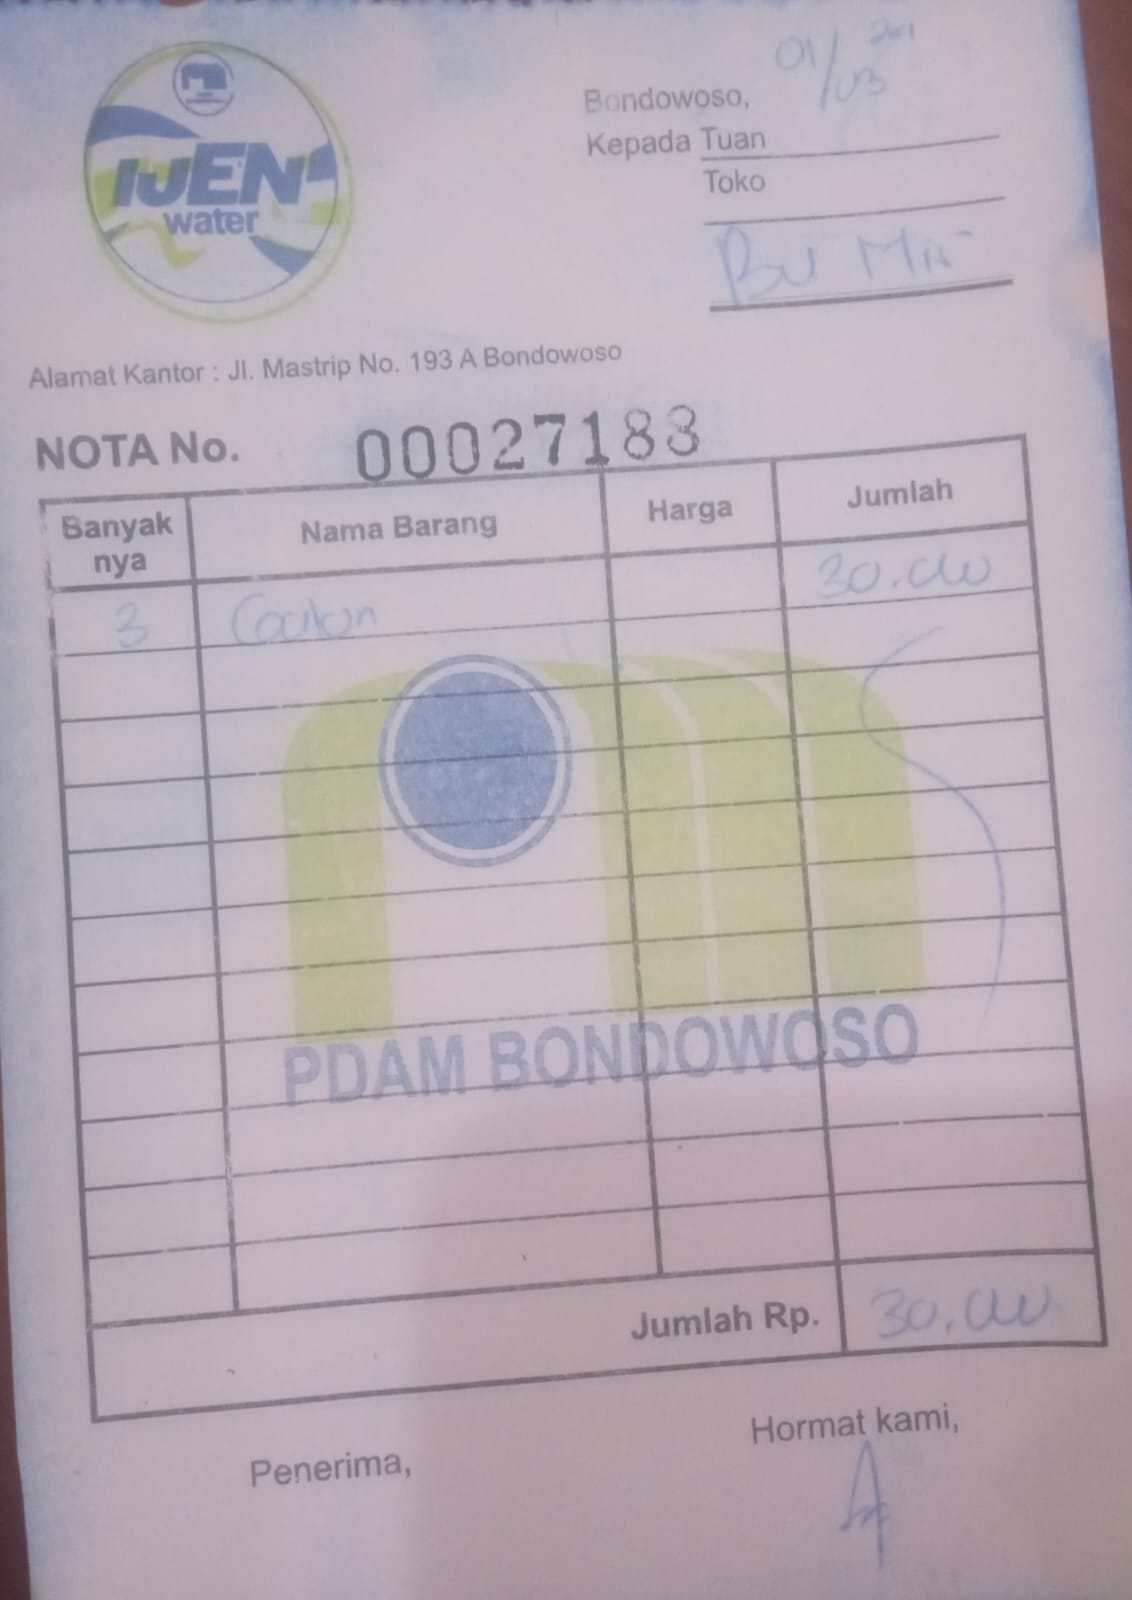 IJEN
water
Bondowoso, 01/03
Kepada Tuan
Toko
Bu
Alamat Kantor : Jl. Mastrip No. 193 A Bondowoso
NOTA No. 00027183
Banyak nya Nama Barang Harga Jumlah
3 30.000
PDAM BONDOWOSO
Jumlah Rp. 30.000
Penerima, Hormat kami,